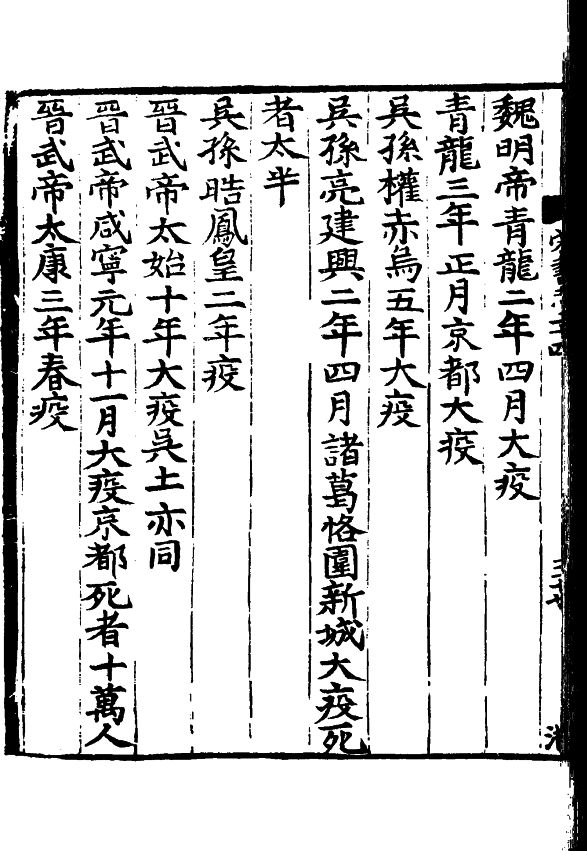 魏明帝青龍二年四月大疫
青龍三年正月京都大疫
吳孫權赤烏五年大疫
吳孫亮建興二年四月諸葛恪圍新城大疫死
者太半
吳孫晧鳳皇二年疫
晉武帝太始十年大疫吳土亦同
晉武帝咸寧元年十一月大疫京都死者十萬人
晉武帝太康三年春疫